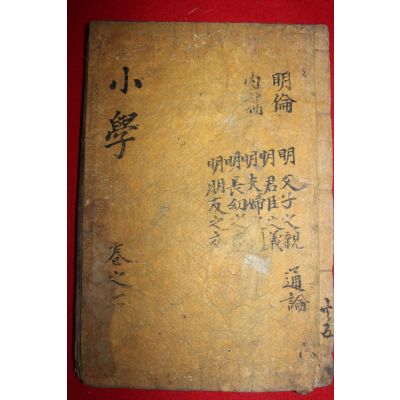 明倫
內篇
明父子之親
明君臣之義
明夫婦
明長幼之
明朋友之交
通論
小學
卷之二